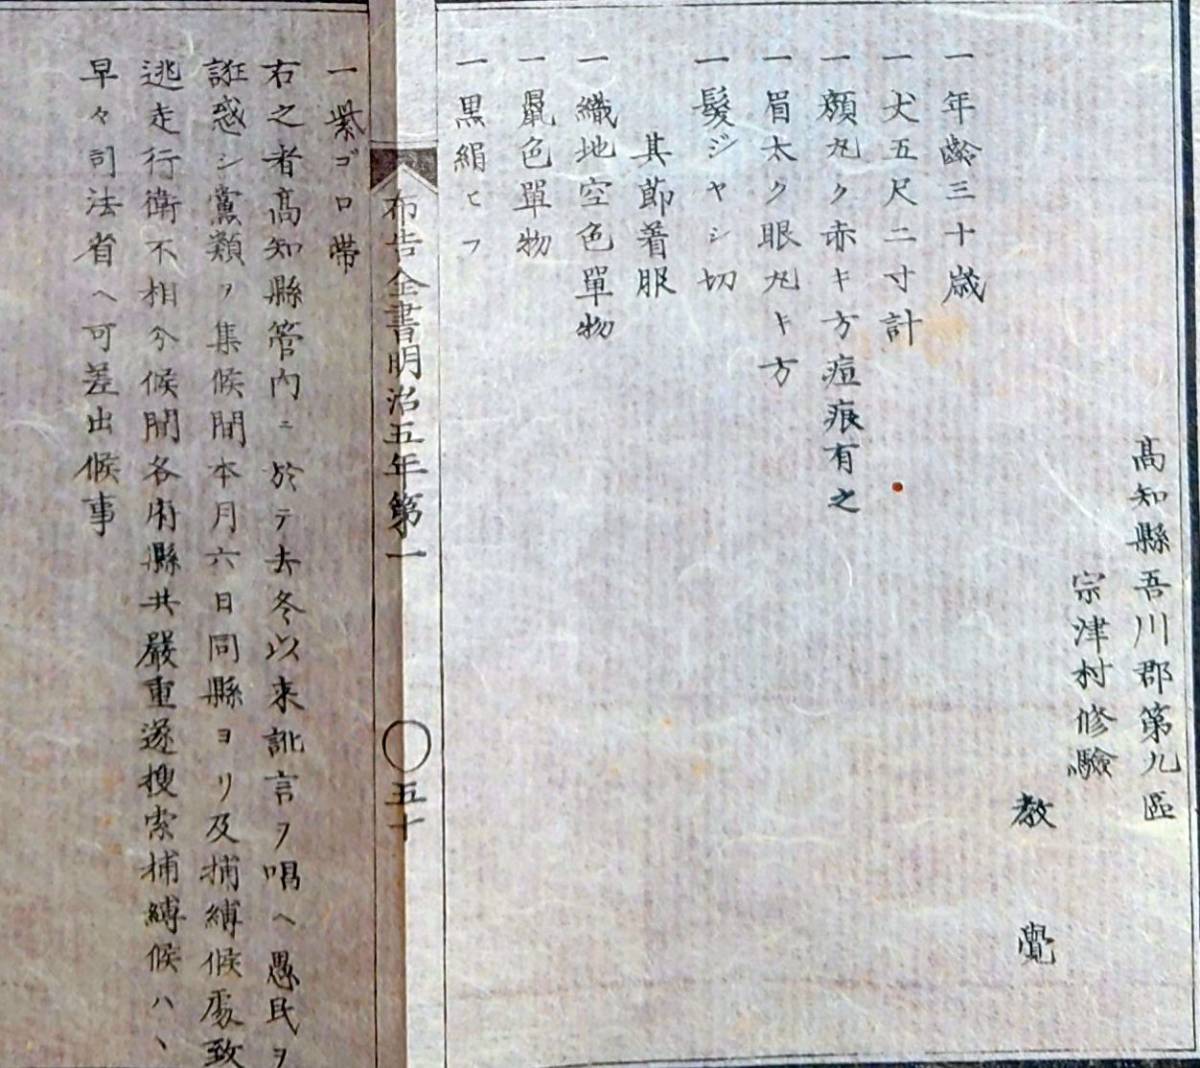 高知縣吾川郡第九區
宗津村修驗
教覺
一年齡三十歲
一丈五尺二寸計
一顏丸ク赤キ方痘痕有之
一眉太ク眼丸ト方
一髮ジヤシ切
其節着服
一織地空色單物
一鼠色單物
一黒絹ヒフ
布告全書明治五年第一
〇五十
一紫ゴロ帶
右之者高知縣管內ニ於テ去冬以来訛言ヲ唱ヘ愚民ヲ
誑惑シ黨類ヲ集候間本月六日同縣ヨリ及捕縛候處致
逃走行衛不相分候間各府縣共嚴重遂搜索捕縛候ハヽ
早々司法省ヘ可差出候事